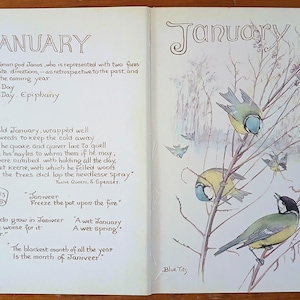 ANUARY
God Janus, who is represented with two faces
ite directions, — as retrospective to the past, and
he coming year.
Day
Day. Epiphany
ld January, wrapped well
weeds to keep the cold away
he quake and quiver like to quell
his nayles to warm them if he may,
were numbed with holding all the day,
et keene, with which he felled wood
the trees did lop the needlesse spray
Faerie Queene. E. Spenser.
"Janiveer
Freeze the pot upon the fire"
do grow in Janiveer
"A wet January
worse for it
A wet Spring"
"The blackest month of all the year
Is the month of Janiveer"
January
Blue Tits